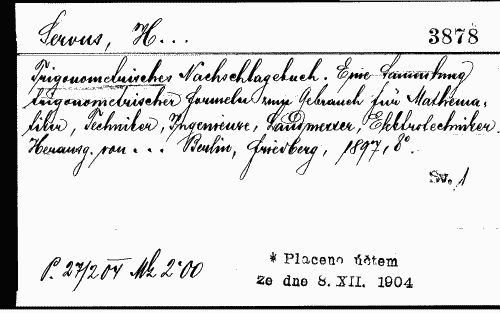 Servus, H...
3878
Trigonometrisches Nachschlagebuch. Eine Sammlung
trigonometrischer Formeln zum Gebrauch für Mathema-
tiker, Techniker, Ingenieure, Landmesser, Elektrotechniker.
Herausg. von ... Berlin, Friedberg, 1897, 8°.
Sv. 1
P. 27/2 04 Mk 2·00
* Placeno účtem
ze dne 8. XII. 1904